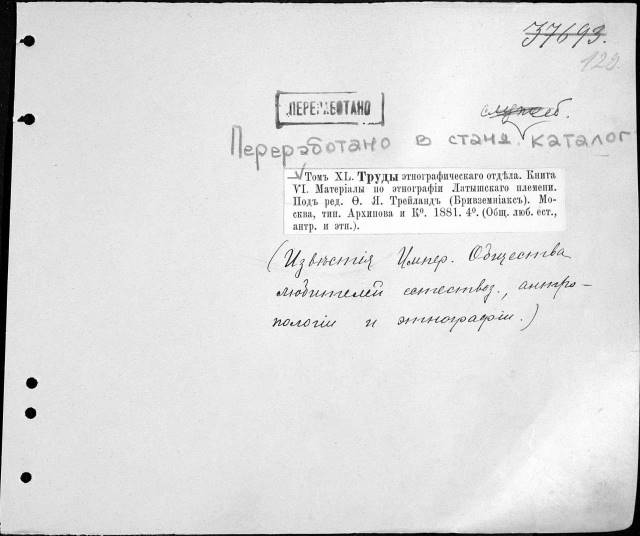 37693.
120.
ПЕРЕРАБОТАНО
служеб.
Переработано в станд. каталог
Томъ XL. Труды этнографическаго отдѣла. Книга
VI. Матеріалы по этнографіи Латышскаго племени.
Подъ ред. Ѳ. Я. Трейландъ (Бривземніаксъ). Мо-
сква, тип. Архипова и Кº. 1881. 4º. (Общ. люб. ест.,
антр. и этн.).
(Извѣстія Импер. Общества
любителей естествоз., антро-
пологіи и этнографіи.)